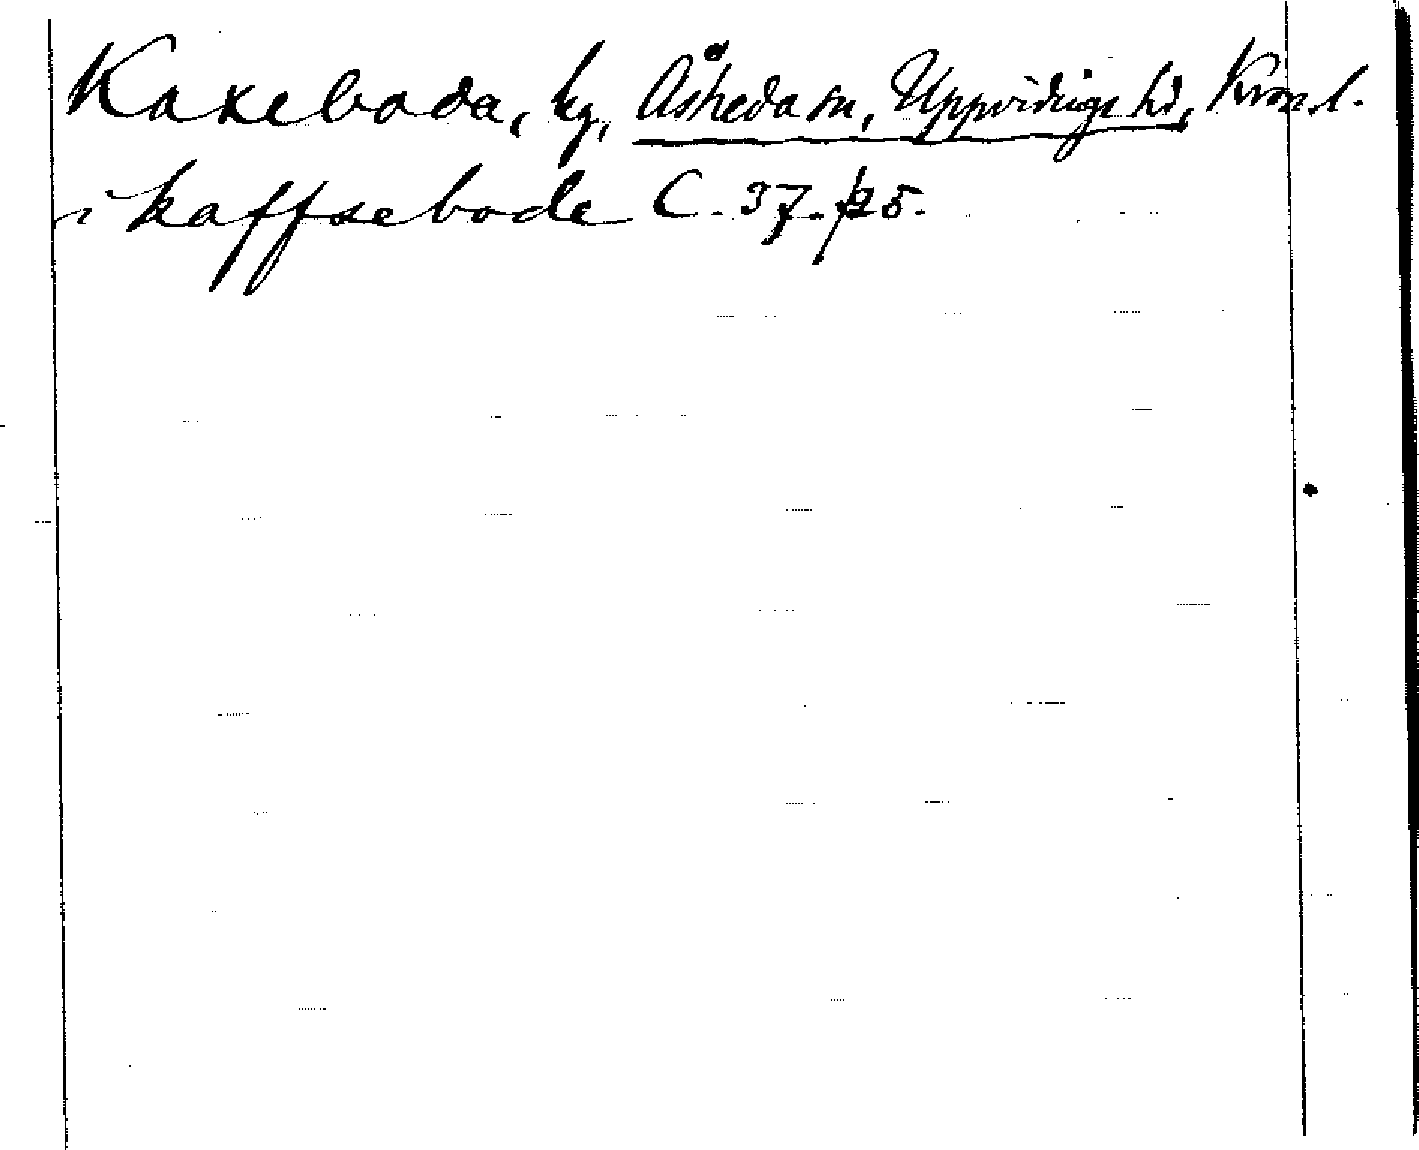 Kaxeboda, by, Åsheda sn, Uppvidinge hd, Kron.l.
i kaffsebode C. 37. /25.